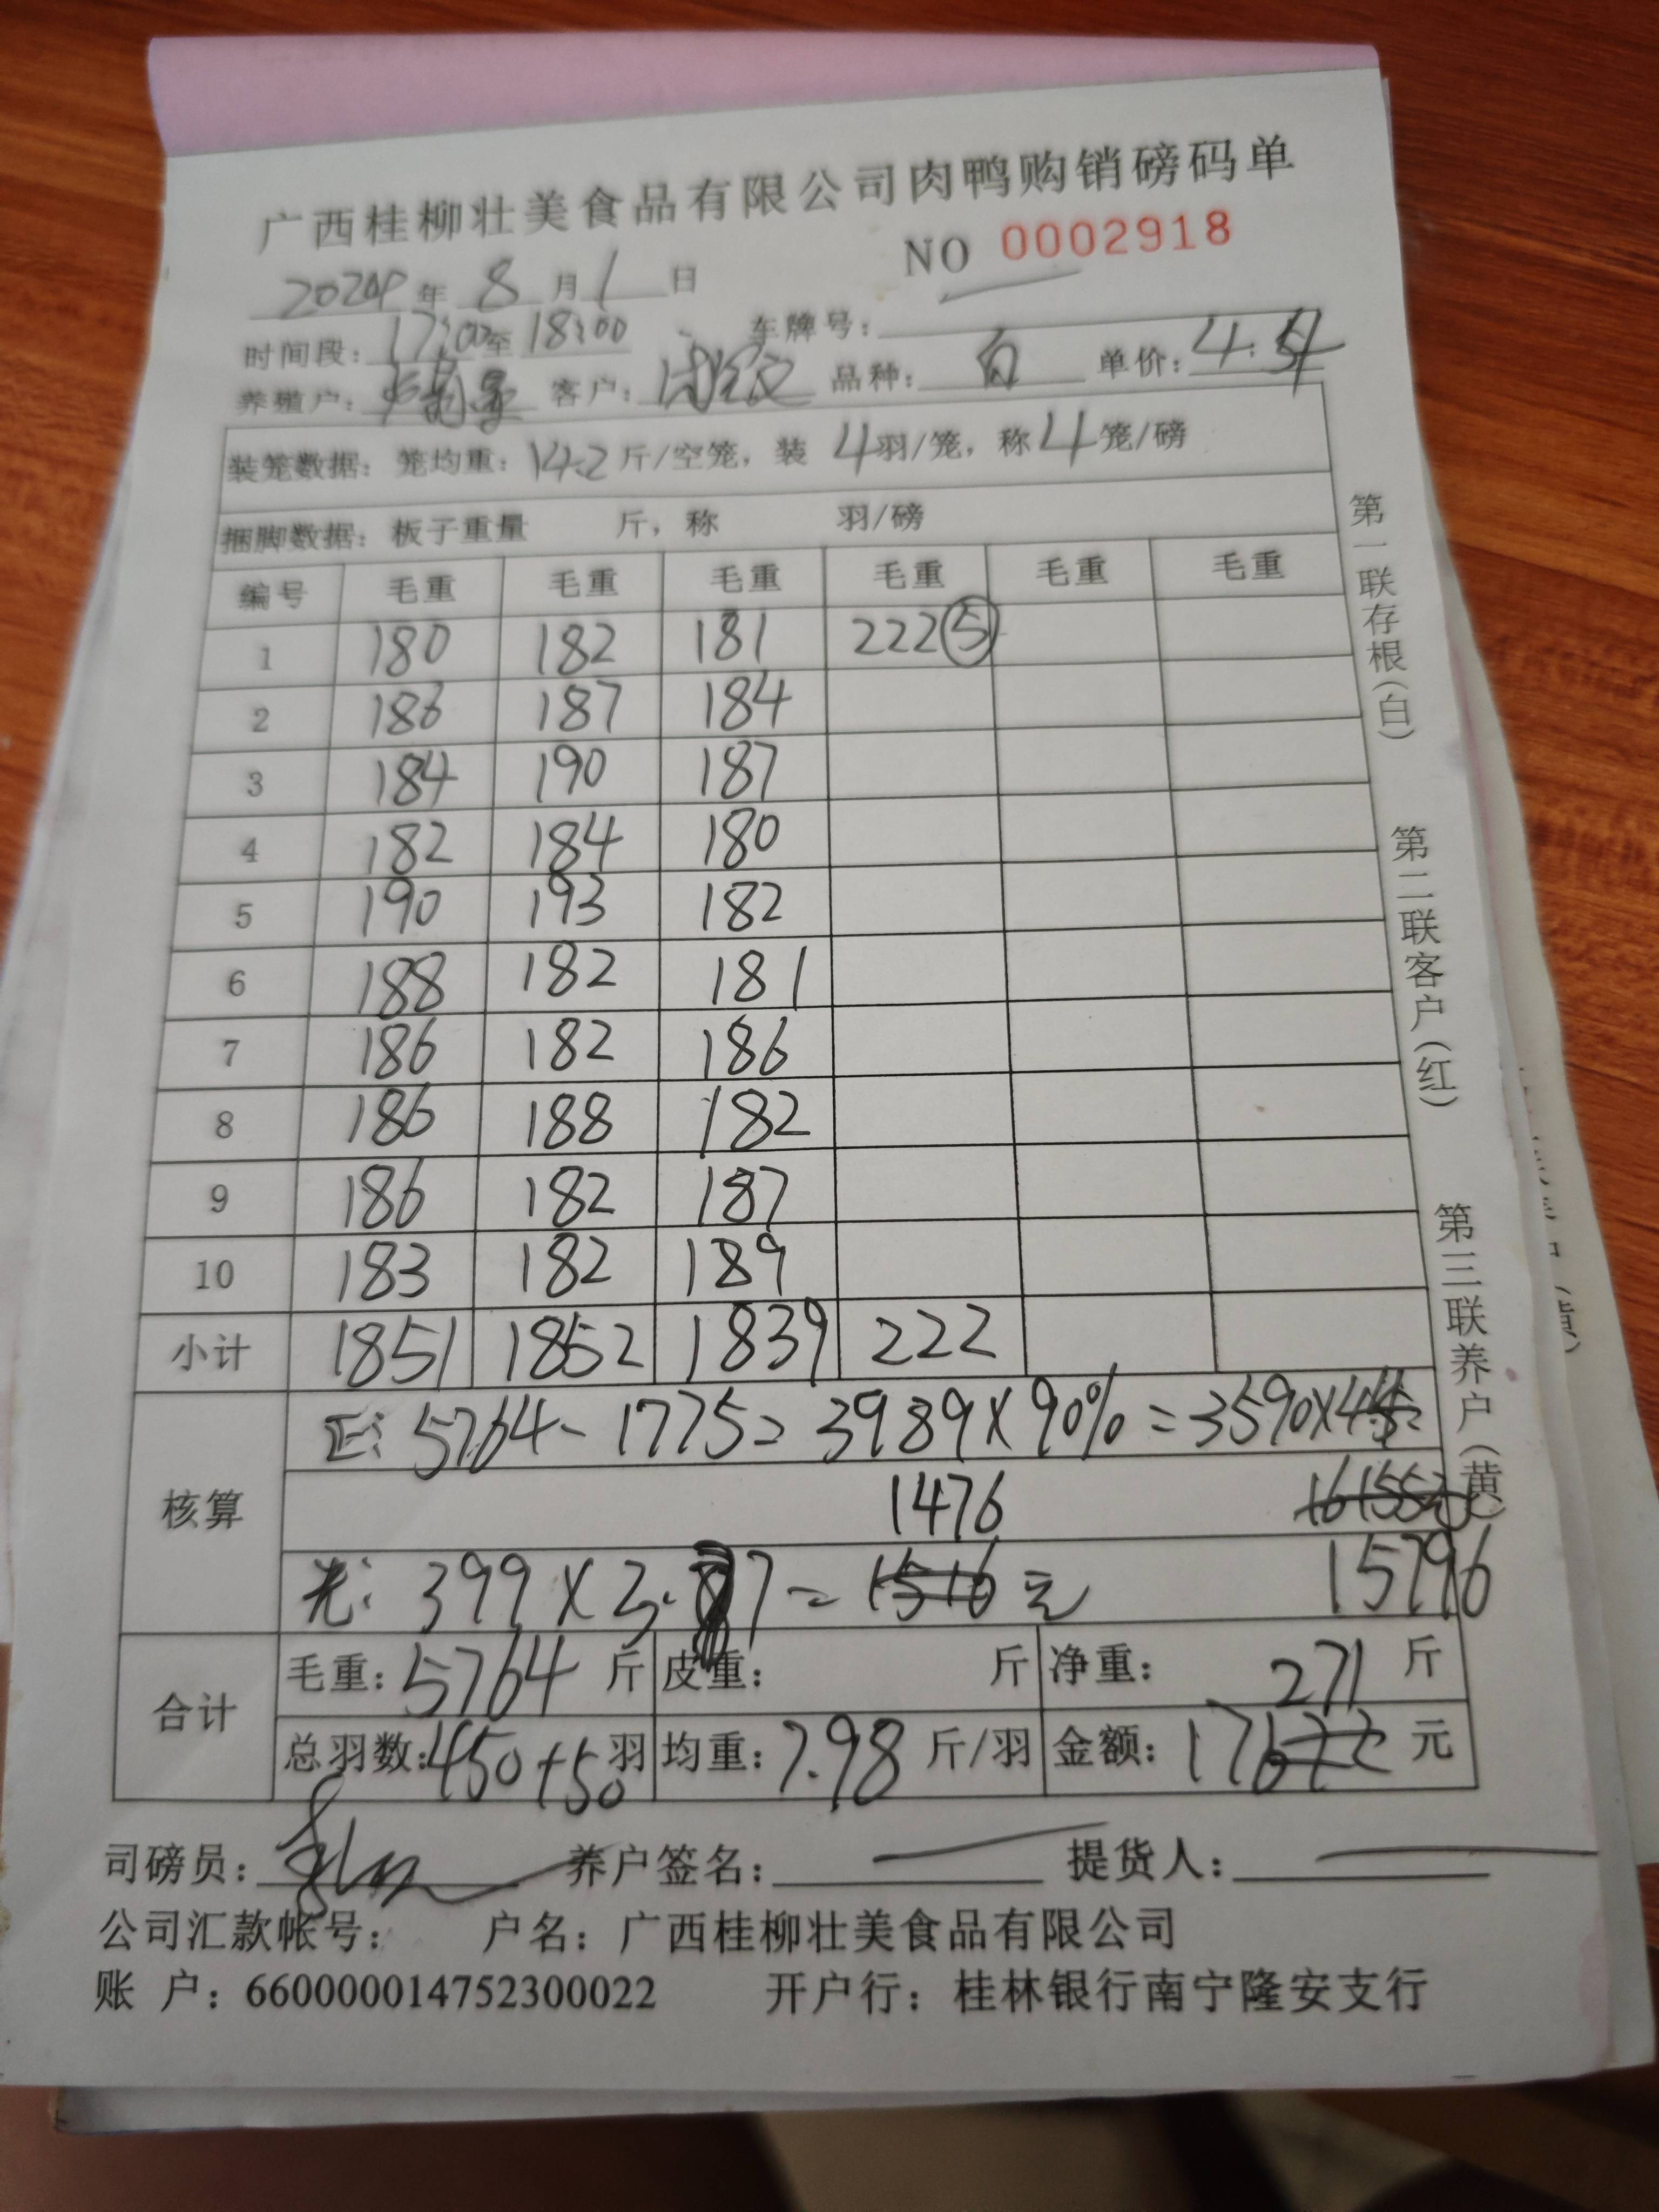 广西桂柳壮美食品有限公司肉鸭购销磅码单
NO 0002918
2024年 8月1日
时间段：17:00至18:00 车牌号：
养殖户： 客户： 品种：白 单价：4.
装笼数据：笼均重：14.2斤/空笼，装 4羽/笼，称4笼/磅
捆脚数据：板子重量 斤，称 羽/磅
编号 毛重 毛重 毛重 毛重 毛重 毛重
1 180 182 181 222⑤
2 186 187 184
3 184 190 187
4 182 184 180
5 190 193 182
6 188 182 181
7 186 182 186
8 186 188 182
9 186 182 187
10 183 182 189
小计 1851 1852 1839 222
核算
正: 5764-1775=3989×90%=3590×4.
1476 16155元
光: 399×3. 7=1516元 15796
合计
毛重：5764斤 皮重： 斤 净重：271斤
总羽数：450+50羽 均重：7.98斤/羽 金额：17672元
司磅员： 养户签名： 提货人：
公司汇款帐号： 户名：广西桂柳壮美食品有限公司
账 户：660000014752300022 开户行：桂林银行南宁隆安支行
第一联存根（白）
第二联客户（红）
第三联养户（黄）